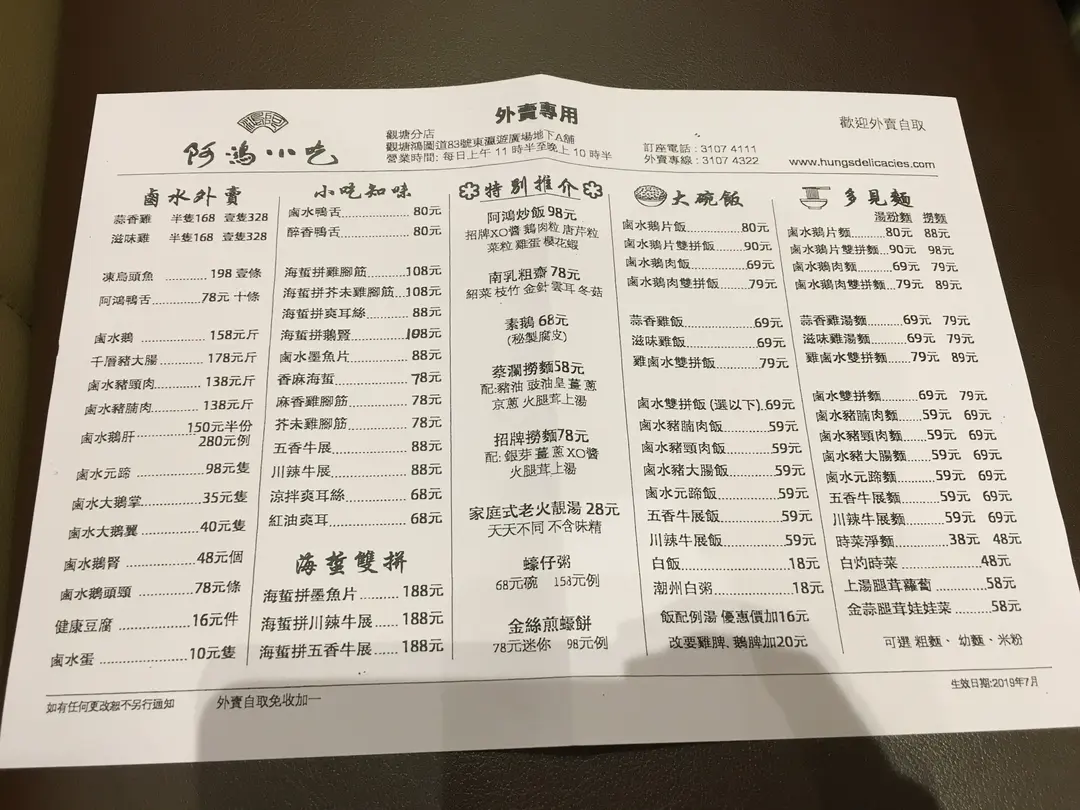 外賣專用
歡迎外賣自取
阿鴻小吃
觀塘分店
觀塘鴻圖道83號東瀛遊廣場地下A舖
營業時間: 每日上午 11 時半至晚上 10 時半
訂座電話 : 3107 4111
外賣專線 : 3107 4322
www.hungsdelicacies.com
鹵水外賣
蒜香雞 半隻168 壹隻328
滋味雞 半隻168 壹隻328
凍烏頭魚 ........... 198 壹條
阿鴻鴨舌 .......... 78元 十條
鹵水鵝 .................. 158元斤
千層豬大腸 ............ 178元斤
鹵水豬頭肉 ............ 138元斤
鹵水豬腩肉 ............ 138元斤
鹵水鵝肝 .............. 150元半份
280元例
鹵水元蹄 ............... 98元隻
鹵水大鵝掌 ............ 35元隻
鹵水大鵝翼 ............ 40元隻
鹵水鵝腎 ............... 48元個
鹵水鵝頭頸 ............ 78元條
健康豆腐 ............... 16元件
鹵水蛋 .................. 10元隻
小吃知味
鹵水鴨舌 ............... 80元
醉香鴨舌 ............... 80元
海蜇拼雞腳筋 ......... 108元
海蜇拼芥未雞腳筋 ... 108元
海蜇拼爽耳絲 ......... 88元
海蜇拼鵝腎 ............ 108元
鹵水墨魚片 ............ 88元
香麻海蜇 ............... 78元
麻香雞腳筋 ............ 78元
芥未雞腳筋 ............ 78元
五香牛展 ............... 88元
川辣牛展 ............... 88元
涼拌爽耳絲 ............ 68元
紅油爽耳 ............... 68元
海蜇雙拼
海蜇拼墨魚片 ......... 188元
海蜇拼川辣牛展 ...... 188元
海蜇拼五香牛展 ...... 188元
特別推介
阿鴻炒飯 98元
招牌XO醬 鵝肉粒 唐芹粒
菜粒 雞蛋 櫻花蝦
南乳粗齋 78元
紹菜 枝竹 金針 雲耳 冬菇
素鵝 68元
(秘製腐皮)
蔡瀾撈麵58元
配:豬油 豉油皇 薑 蔥
京蔥 火腿茸上湯
招牌撈麵78元
配: 銀芽 薑 蔥 XO醬
火腿茸上湯
家庭式老火靚湯 28元
天天不同 不含味精
蠔仔粥
68元碗 158元例
金絲煎蠔餅
78元迷你 98元例
大碗飯
鹵水鵝片飯 ............ 80元
鹵水鵝片雙拼飯 ...... 90元
鹵水鵝肉飯 ............ 69元
鹵水鵝肉雙拼飯 ...... 79元
蒜香雞飯 ............... 69元
滋味雞飯 ............... 69元
雞鹵水雙拼飯 ......... 79元
鹵水雙拼飯 (選以下) .. 69元
鹵水豬腩肉飯 ......... 59元
鹵水豬頸肉飯 ......... 59元
鹵水豬大腸飯 ......... 59元
鹵水元蹄飯 ............ 59元
五香牛展飯 ............ 59元
川辣牛展飯 ............ 59元
白飯 ..................... 18元
潮州白粥 ............... 18元
飯配例湯 優惠價加16元
改要雞髀, 鵝髀加20元
多見麵
湯粉麵 撈麵
鹵水鵝片麵 ............ 80元 88元
鹵水鵝片雙拼麵 ... 90元 98元
鹵水鵝肉麵 ............ 69元 79元
鹵水鵝肉雙拼麵 ... 79元 89元
蒜香雞湯麵 ............ 69元 79元
滋味雞湯麵 ............ 69元 79元
雞鹵水雙拼麵 ......... 79元 89元
鹵水雙拼麵 ............ 69元 79元
鹵水豬腩肉麵 ......... 59元 69元
鹵水豬頸肉麵 ......... 59元 69元
鹵水豬大腸麵 ......... 59元 69元
鹵水元蹄麵 ............ 59元 69元
五香牛展麵 ............ 59元 69元
川辣牛展麵 ............ 59元 69元
時菜淨麵 ............... 38元 48元
白灼時菜 ............... 48元
上湯腿茸蘿蔔 ......... 58元
金蒜腿茸娃娃菜 ...... 58元
可選 粗麵、幼麵、米粉
如有任何更改恕不另行通知
外賣自取免收加一
生效日期:2019年7月